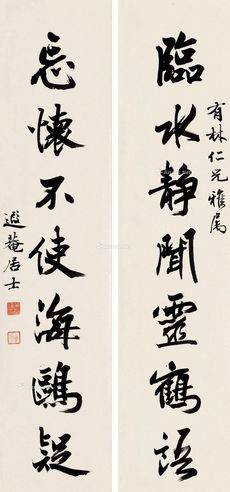 臨水靜聞靈鶴語
有林仁兄雅屬
忘懷不使海鷗疑
遐菴居士